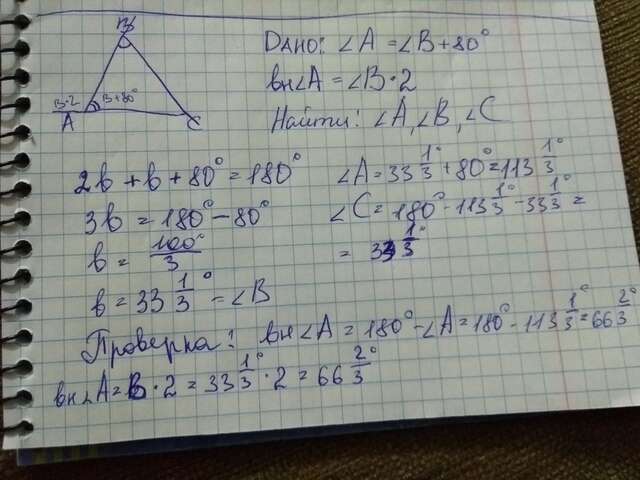 B
B·2
B+80°
A
C
Дано: ∠A = ∠B + 80°
вн∠A = ∠B · 2
Найти: ∠A, ∠B, ∠C
2b + b + 80° = 180°
3b = 180° - 80°
b = 100°/3
b = 33 1/3° - ∠B
∠A = 33 1/3° + 80° = 113 1/3°
∠C = 180° - 113 1/3° - 33 1/3° =
= 33 1/3°
Проверка: вн∠A = 180° - ∠A = 180° - 113 1/3° = 66 2/3°
вн∠A = B · 2 = 33 1/3° · 2 = 66 2/3°